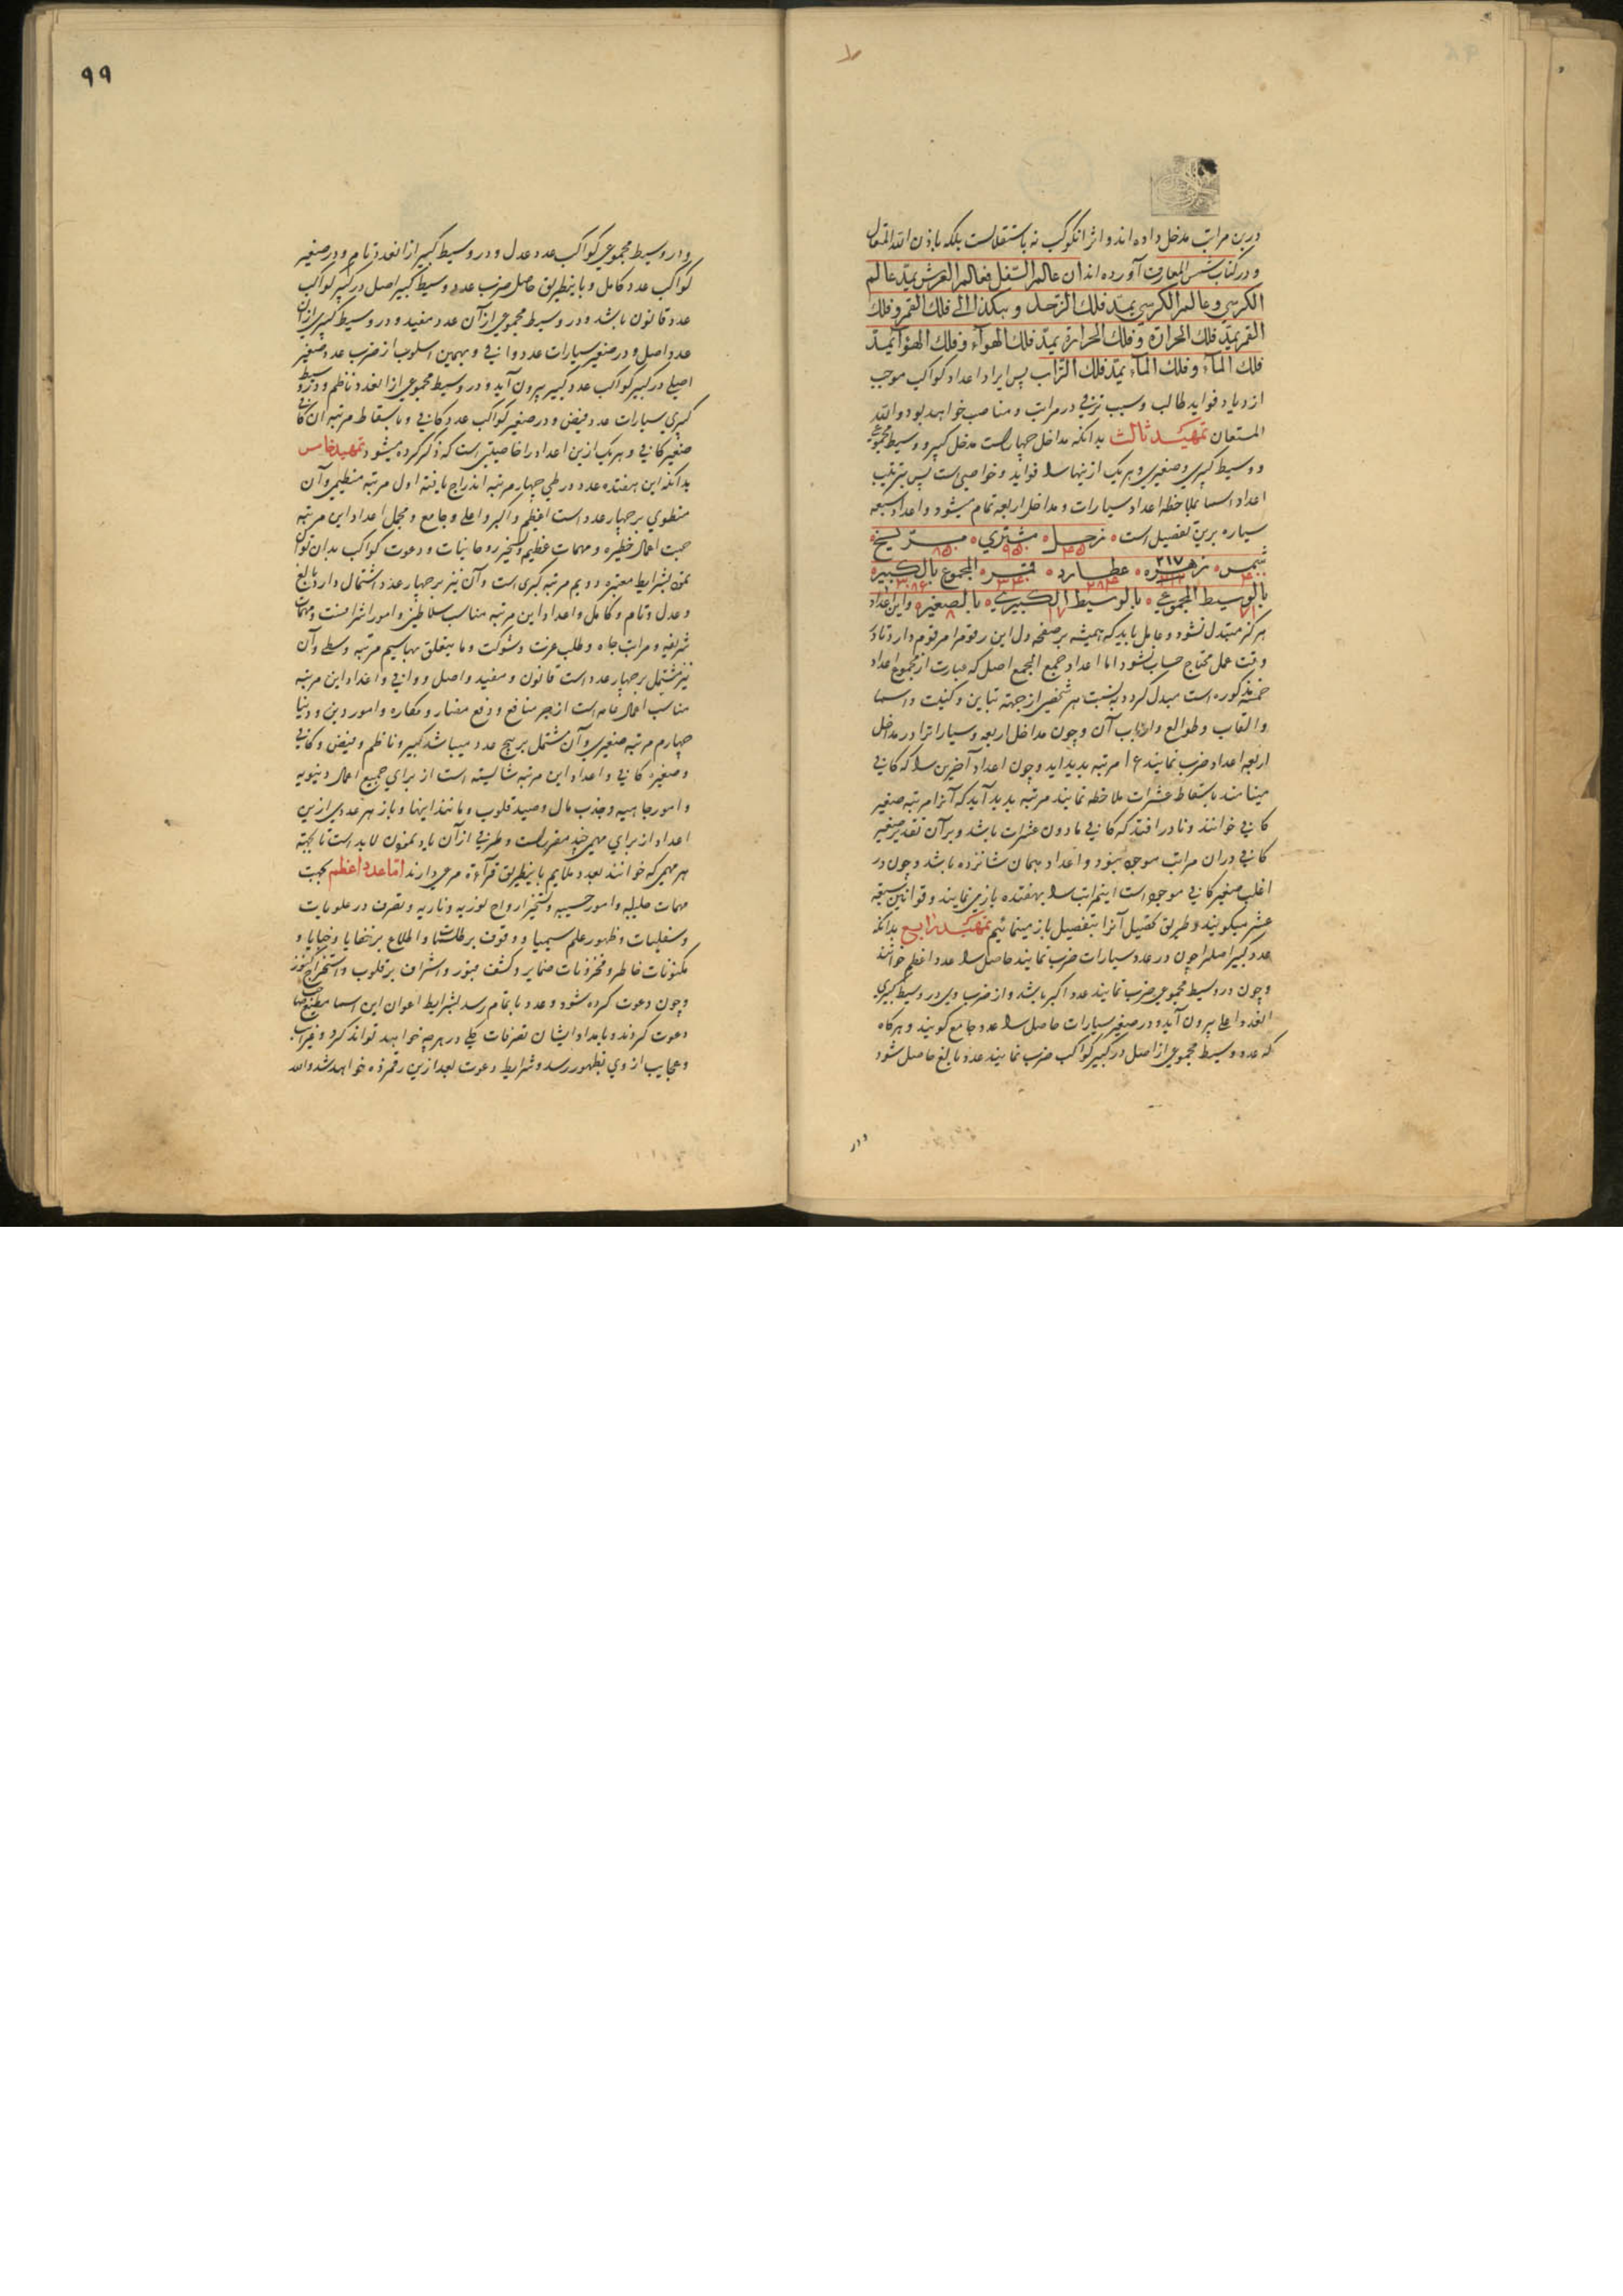 درین مراتب مدخل داده اند و اثر آنکوکب نه باستقلالست بلکه باذن الله المتعال
و در کتاب شمس المعارف آورده اند ان عالم السفل فعالم العرش یمد عالم
الکرسی و عالم الکرسی یمد فلک الزحل و هکذا الی فلک القمر و فلک
القمر یمد فلک الحرارة و فلک الحرارة یمد فلک الهوآء و فلک الهوآ یمد
فلک المآء و فلک المآء یمد فلک التراب پس ایراد اعداد کواکب موجب
ازدیاد فواید طالب و سبب ترقی در مراتب و مناصب خواهد بود والله
المستعان تمهید ثالث بدانکه مداخل چهارست مدخل کبیر و وسیط مجموعی
و وسیط کبیری و صغیری و هر یک ازینها را فواید و خواصی است پس ترتیب
اعداد اسما بملاحظه اعداد سیارات و مداخل اربعه تمام میشود و اعداد سبعه
سیاره برین تفصیل است زحل ۴۵ مشتری ۹۵۰ مریخ ۸۵۰
شمس ۴۰۰ زهره ۲۱۷ عطارد ۲۸۴ قمر ۳۴۰ المجموع بالکبیر ۳۰۸۶
بالوسیط المجموعی ۷۱ بالوسیط الکبیری ۱۷ بالصغیر ۸ و این اعداد
هرگز متبدل نشود و عامل باید که همیشه بر صفحه دل این رقوم را مرقوم دارد تا در
وقت عمل محتاج حساب نشود اما اعداد جمع الجمع اصل که عبارت از مجموع اعداد
خمسه مذکوره است مبدل گردد به نسبت هر شخصی از جهة تباین و کنیت و اسما
و القاب و طوالع و ارباب آن و چون مداخل اربعه و سیارات را در مداخل
اربعه اعداد ضرب نمایند ۱۶ مرتبه پدید اید و چون اعداد آخرین را که کافی
مینامند باسقاط عشرات ملاحظه نمایند مرتبه پدید آید که آنرا مرتبه صغیر
کافی خوانند و نادر افتد که کافی مادون عشرات باشد و بر آن تقدیر صغیر
کافی در ان مراتب موجود نبود و اعداد همان شانزده باشد و چون در
اغلب صغیر کافی موجود است اینمراتب را بهفتده باز می نمایند و قوانین سبعه
عشر میگویند و طریق تحصیل آنرا بتفصیل باز مینمائیم تمهید رابع بدانکه
عدد کبیر اصل را چون در عدد سیارات ضرب نمایند حاصل را عدد اعظم خوانند
و چون در وسیط مجموعی ضرب نمایند عدد اکبر باشد و از ضرب وی در وسیط کبیری
العدد اعلی بیرون آید و در صغیر سیارات حاصل را عدد جامع گویند و هرگاه
که عدد وسیط مجموعی از اصل در کبیر کواکب ضرب نمایند عدد بالغ حاصل شود
و در
۹۹
و در وسیط مجموعی کواکب عدد عدل و در وسیط کبیر از العدد تام و در صغیر
کواکب عدد کامل و باینطریق حاصل ضرب عدد وسیط کبیر اصل در کبیر کواکب
عدد قانون باشد و در وسیط مجموعی از آن عدد مفید و در وسیط کبیری از آن
عدد اصل و در صغیر سیارات عدد وافی و بهمین اسلوب از ضرب عدد صغیر
اصلی در کبیر کواکب عدد کبیر بیرون آید و در وسیط مجموعی از العدد ناظم و در وسیط
کبیری سیارات عدد فیض و در صغیر کواکب عدد کافی و باسقاط مرتبه آن کافی
صغیر کافی و هر یک ازین اعداد را خاصیتی است که ذکر کرده میشود تمهید خامس
بدانکه این هفتده عدد در طی چهار مرتبه اندراج یافته اول مرتبه عظیمی و آن
منطوی بر چهار عدد است اعظم و اکبر و اعلی و جامع و مجمل اعداد این مرتبه
جهت اعمال خطیره و مهمات عظیم و تسخیر روحانیات و دعوت کواکب بدان توان
نمود بشرایط معتبره دویم مرتبه کبری است و آن نیز بر چهار عدد اشتمال دارد بالغ
و عدل و تام و کامل و اعداد این مرتبه مناسب سلاطین و امور اشرافست و مهمات
شریفه و مراتب جاه و طلب عزت و شوکت و ما یتعلق بها سیم مرتبه وسطی و آن
نیز مشتمل بر چهار عدد است قانون و مفید و اصل و وافی و اعداد این مرتبه
مناسب اعمال عامه است از جر منافع و دفع مضار و مکاره و امور دین و دنیا
چهارم مرتبه صغیری و آن مشتمل بر پنج عدد میباشد کبیر و ناظم و فیض و کافی
و صغیر کافی و اعداد این مرتبه شایسته است از برای جمیع اعمال دنیویه
و امور جاهیه و جذب مال و صید قلوب و مانند اینها و باز هر عددی ازین
اعداد از برای مهمی چند مقررست و طرفی از آن یاد نمودن لابد است تا بجهة
هر مهمی که خوانند بعدد ملایم باینطریق قرآءة مرعی دارند اما عدد اعظم بجهت
مهمات جلیله و امور حسیبه و تسخیر ارواح نوریه و ناریه و تصرف در علویات
و سفلیات و ظهور علم سیمیا و وقوف بر طلسمات و اطلاع بر خفایا و خبایا و
مکنونات خاطر و مخزونات ضمایر و کشف قبور و اشراف بر قلوب و استخراج کنوز
و چون دعوت کرده شود و عدد باتمام رسد بشرایط اعوان این اسما مطیع صاحب
دعوت گردند و بامداد ایشان تصرفات کلی در هر چه خواهد تواند کرد و غرایب
و عجایب از وی بظهور رسد و شرایط دعوت بعد ازین رقمزده خواهد شد والله